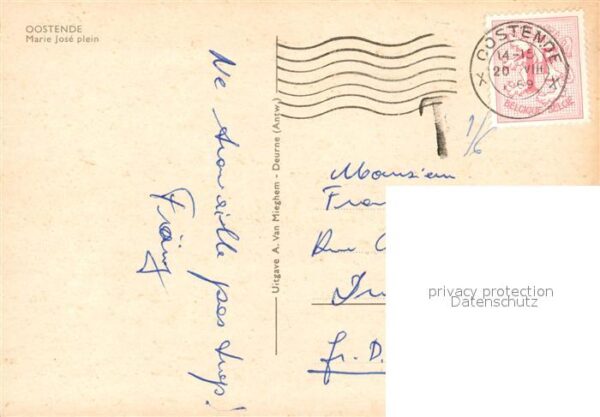 OOSTENDE
Marie José plein
Ne travaille pas trop!
Uitgave A. Van Mieghem - Deurne (Antw.)
OOSTENDE
14-15
20 VIII
1969
X X
BELGIQUE-BELGIE
T
1/6
Monsieur
Fran
Rue
fr. D.
privacy protection
Datenschutz